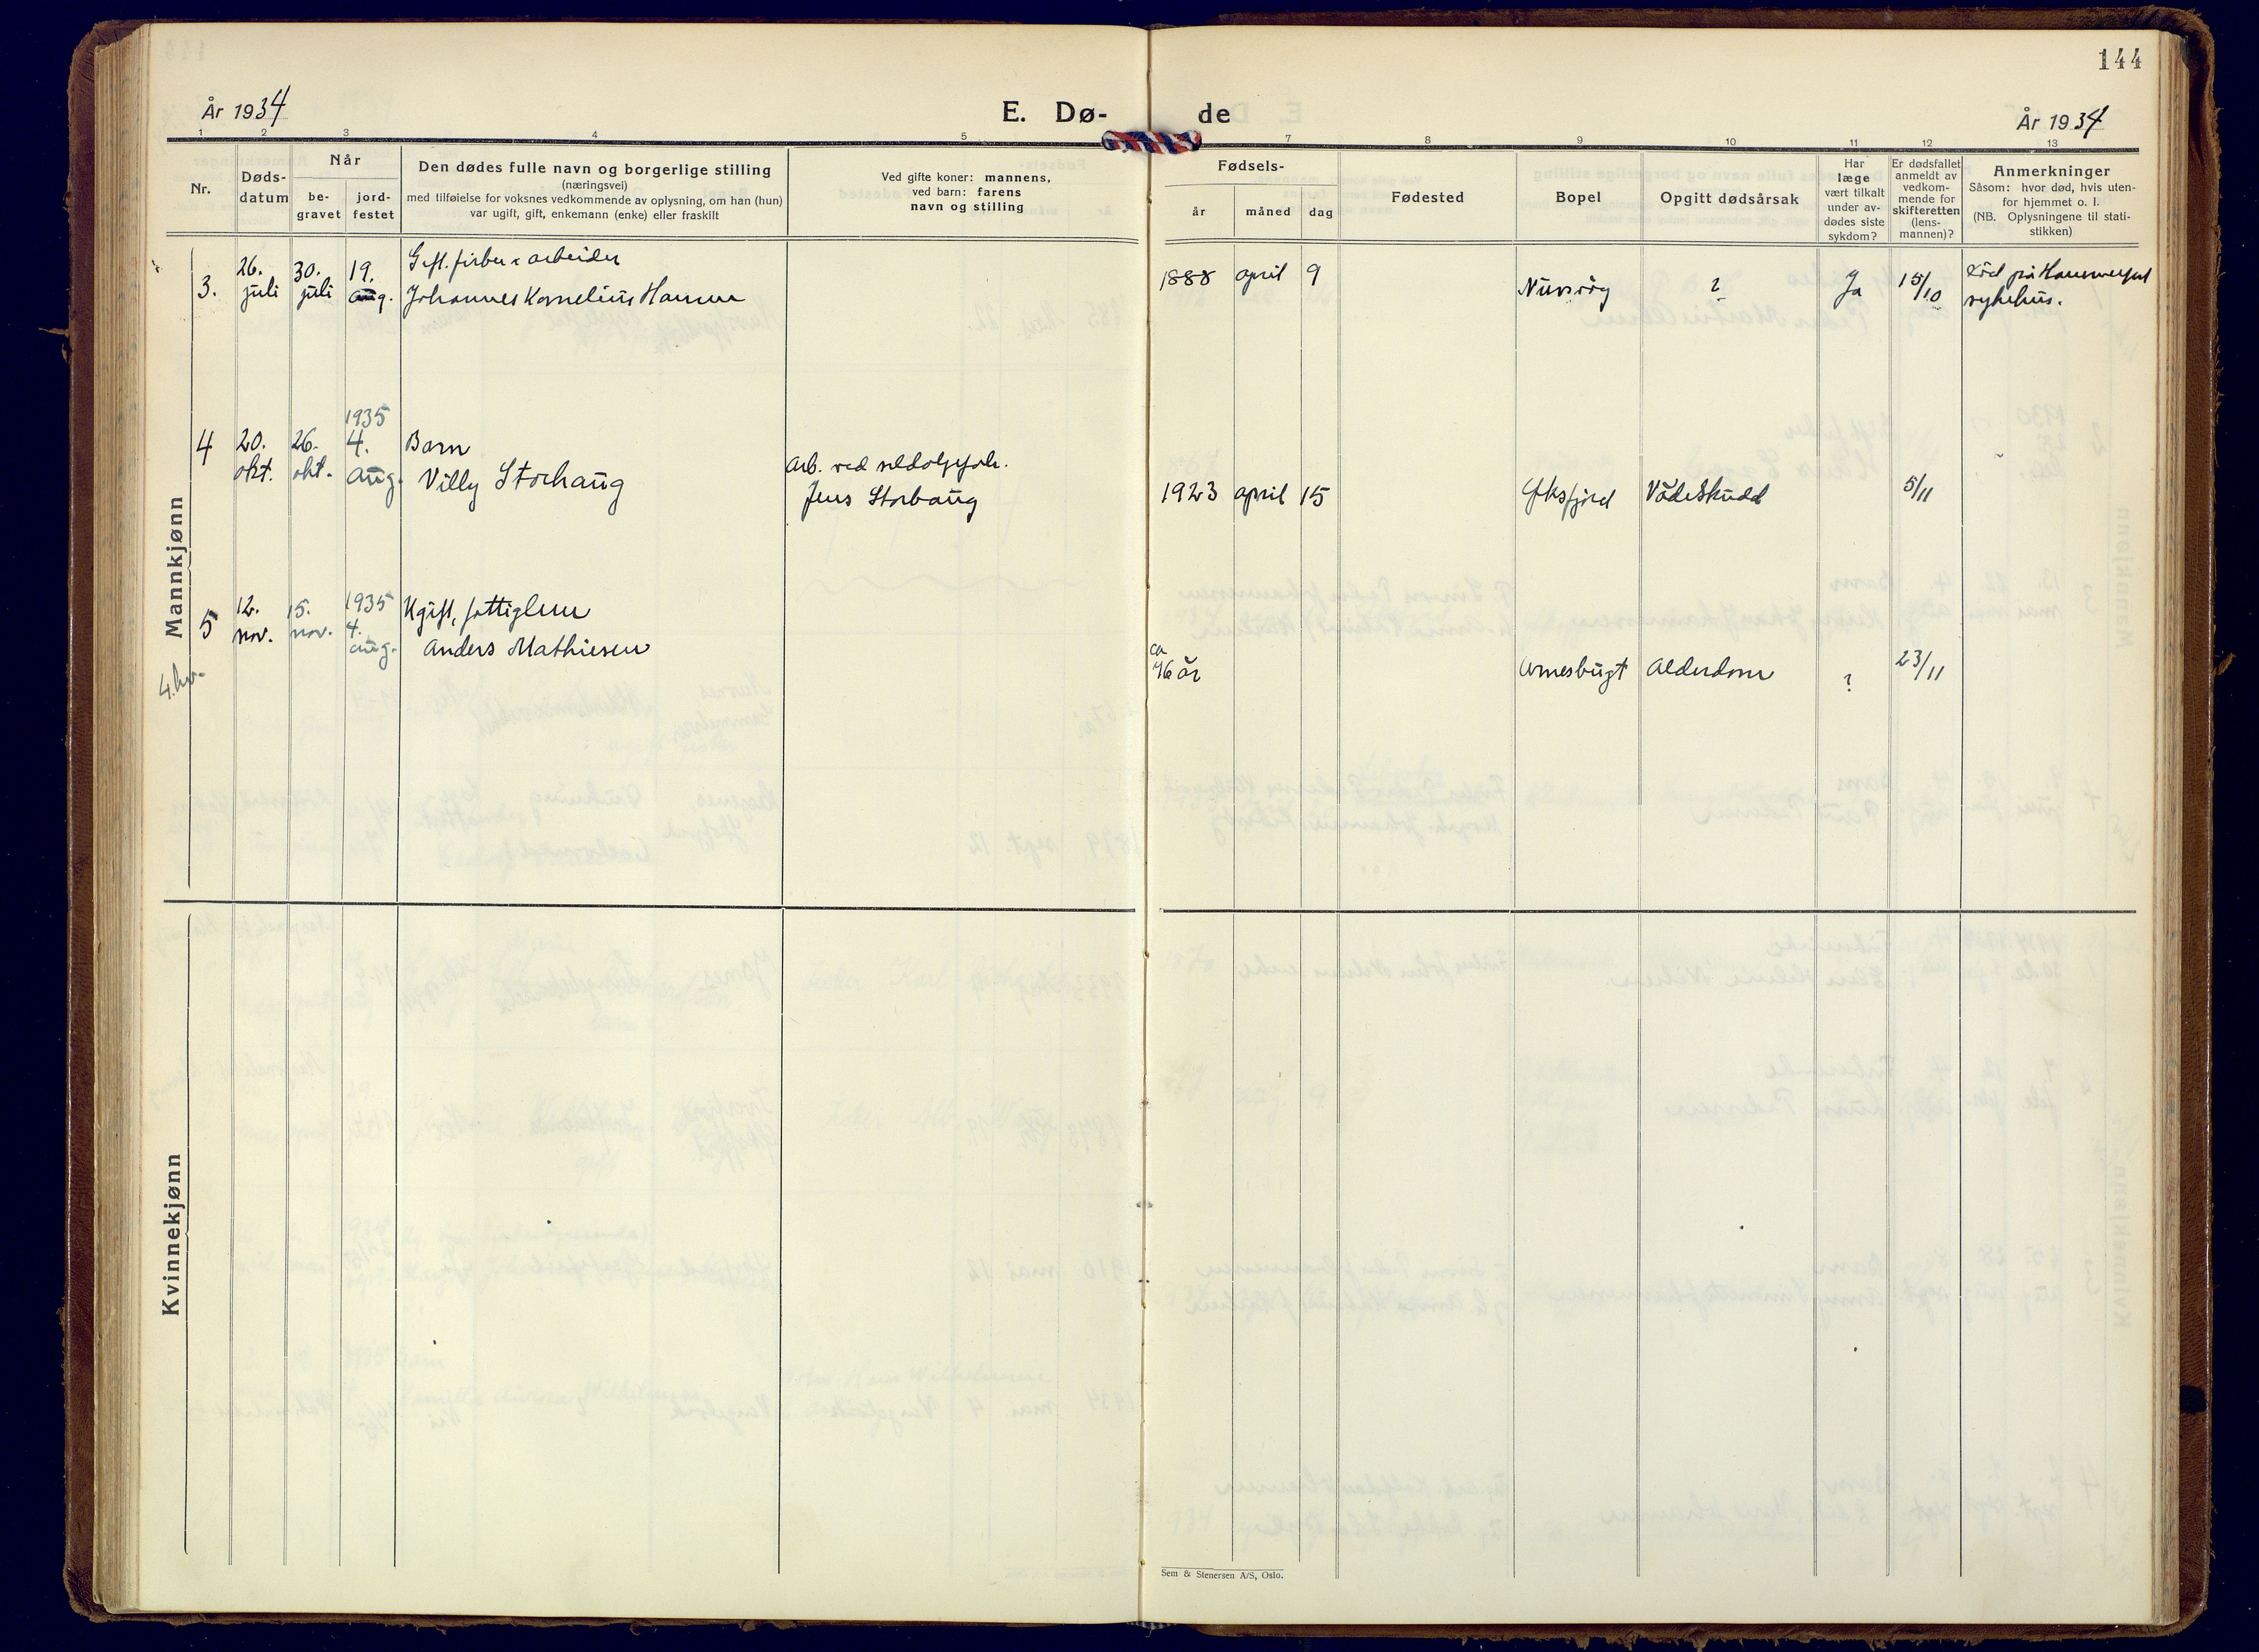 144
År 1934
E. Dø- de
År 1934
1 2 3 4 5 7 8 9 10 11 12 13
Nr.
Døds-
datum
Når
be-
gravet
jord-
festet
Den dødes fulle navn og borgerlige stilling
(næringsvei)
med tilføielse for voksnes vedkommende av oplysning, om han (hun)
var ugift, gift, enkemann (enke) eller fraskilt
Ved gifte koner: mannens,
ved barn: farens
navn og stilling
Fødsels-
år
måned
dag
Fødested
Bopel
Opgitt dødsårsak
Har
læge
vært tilkalt
under av-
dødes siste
sykdom?
Er dødsfallet
anmeldt av
vedkom-
mende for
skifteretten
(lens-
mannen)?
Anmerkninger
Såsom: hvor død, hvis uten-
for hjemmet o. l.
(NB. Oplysningene til stati-
stikken)
Mannkjønn
3.
26.
juli
30.
juli
19.
aug.
Gift. arbeider
Johannes Kornelius Hansen
1888 april 9
?
Ja
15/10
død på Hammerfest
sykehus.
4
20.
okt.
26.
okt.
1935
4.
aug.
Barn
Villy Storhaug
Arb. ved
Jens Storhaug
1923 april 15
Øksfjord
Vådeskudd
5/11
5
12.
nov.
15.
nov.
1935
4.
aug.
Ugift,
Anders Mathiesen
ca
år
Arnesbugt
Alderdom
?
23/11
Kvinnekjønn
Sem & Stenersen A/S, Oslo.